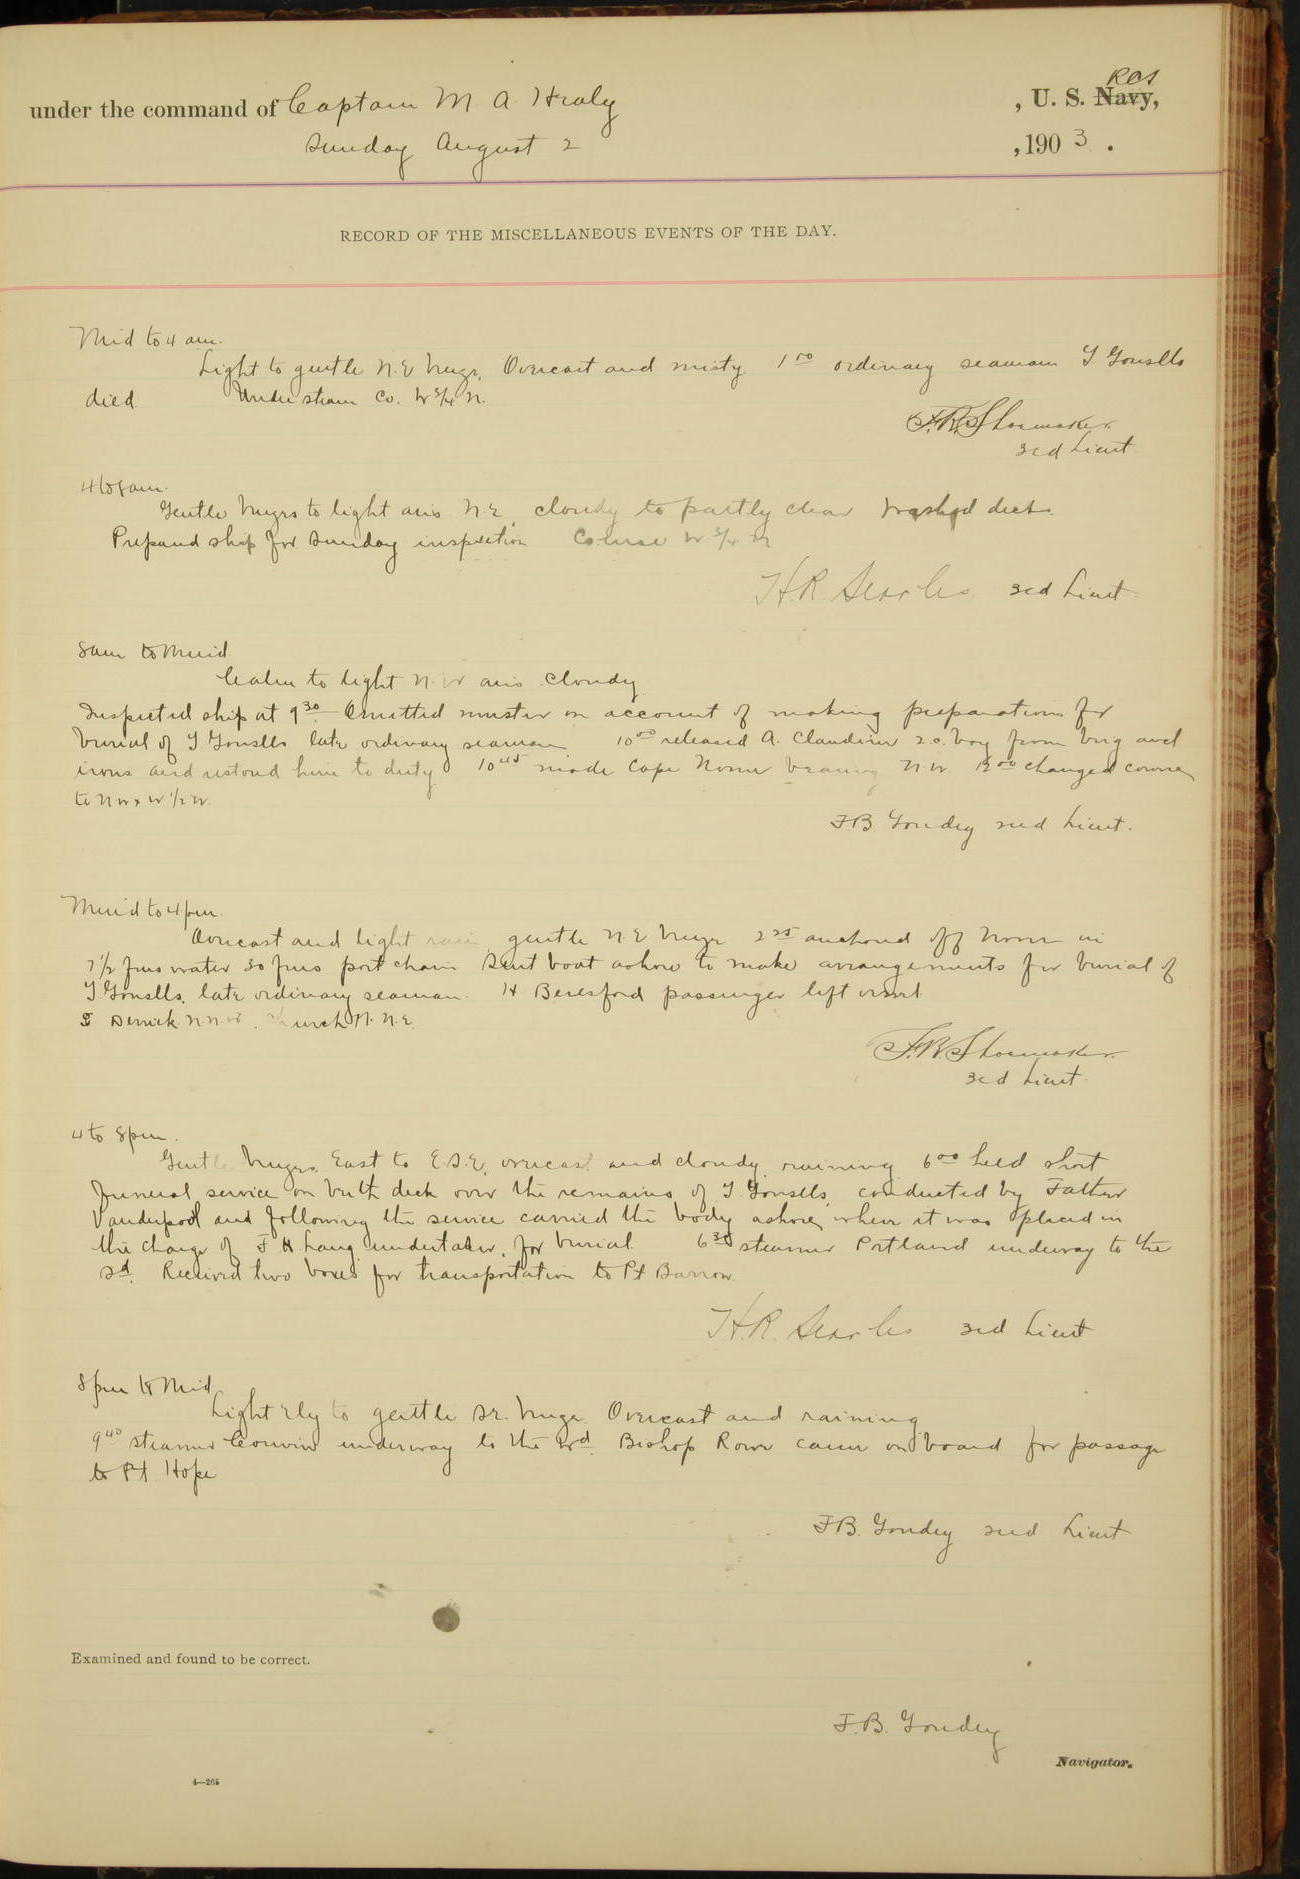 RCS
under the command of Captain M. A. Healy , U. S. Navy,
Sunday August 2 , 190 3 .
RECORD OF THE MISCELLANEOUS EVENTS OF THE DAY.
Mid to 4 am.
Light to gentle N.E breeze, Overcast and misty. 1 00 ordinary seaman T Gonsells
died Under steam Co. W 3/4 N.
F.R. Shoemaker
3rd Lieut
4 to 8 am.
Gentle breezes to light airs N.E, cloudy to partly clear Washed decks.
Prepared ship for Sunday inspection Course W 3/4 N
H.R. Searles 3rd Lieut
8am to Merid
Calm to light N.W airs cloudy
Inspected ship at 9 30 Omitted muster on account of making preparations for
burial of T Gonsells late ordinary seaman 10 00 released A. Claudino 2 c. boy from brig and
irons and restored him to duty 10 45 made Cape Nome bearing N.W. 12 00 changed course
to NW x W 1/2 W.
F.B. Goudey 2nd Lieut.
Merid to 4 pm.
Overcast and light rain, gentle N.E breeze 2 25 anchored off Nome in
7 1/2 fms water 30 fms port chain Sent boat ashore to make arrangements for burial of
T Gonsells, late ordinary seaman. H Beresford passenger left vessel
Derrick N.N.W. Church N.N.E.
F.R. Shoemaker
3rd Lieut
4 to 8 pm.
Gentle breezes East to E.S.E, overcast and cloudy, raining 6 00 held short
funeral service on berth deck over the remains of T. Gonsells, conducted by Father
Vanderpool and following the service carried the body ashore, where it was placed in
the charge of F H Lang, undertaker, for burial. 6 30 steamer Portland underway to the
Sd. Received two boxes for transportation to Pt Barrow.
H.R. Searles 3rd Lieut
8pm to Mid
Light Ely to gentle SE. breeze Overcast and raining
9 40 steamer Corwin underway to the Wd. Bishop Rowe came on board for passage
to Pt Hope
F.B. Goudey 2nd Lieut
Examined and found to be correct.
F.B. Goudey
Navigator.
4—265